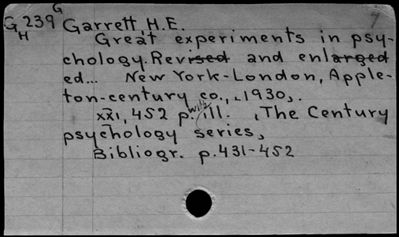 G
G 239 Garrett, H.E. 7
H
Great experiments in psy-
chology. Revised and enlarged
ed... New York-London, Apple-
ton-century co., 1930,.
xxi, 452 p. with ill. (The Century
psychology series,
Bibliogr. p. 431-452